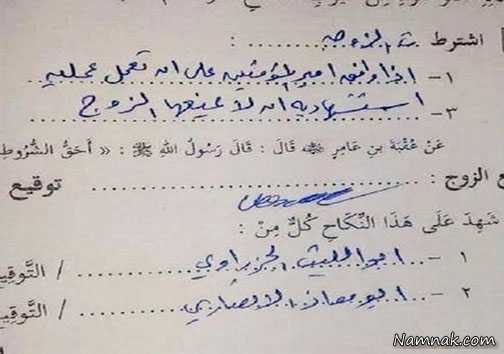 اشترطت الزوجة :
١- اذا وافق امير المؤمنين على ان تعمل عملية
٣- استشهادية ان لا يمنعها الزوج
عَنْ عُقْبَةَ بنِ عَامِرٍ ﷺ قَالَ : قَالَ رَسُولُ اللهِ ﷺ : « أَحَقُّ الشُّرُوطِ
ع الزوج : توقيع
شَهِدَ عَلَى هَذَا النِّكَاحِ كُلٌّ مِنْ :
١ - ابو الليث الجزراوي / التَّوقِيـ
٢ - ابو معاذ الانصاري / التَّوقِيـ
Namnak.com